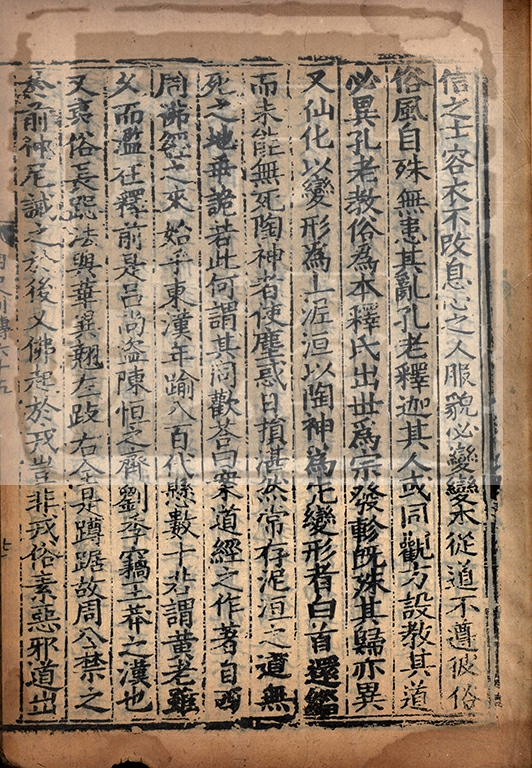 信之士容衣不改息心之人服貌必變變本從道不遵彼俗
俗風自殊無患其亂孔老釋迦其人或同觀方設教其道
必異孔老教俗為本釋氏出世為宗發軫旣殊其歸亦異
又仙化以變形為上泥洹以陶神為先變形者白首還緇
而未能無死陶神者使塵惑日損湛然常存泥洹之道無
死之地乖詭若此何謂其同歡荅曰案道經之作著自西
周佛經之來始乎東漢年踰八百代縣數十若謂黄老雖
久而濫在釋前是呂尚盗陳恒之齊劉季竊王莽之漢也
又夷俗長跽法與華異翹左跂右全是蹲踞故周公禁之
於前仲尼誡之於後又佛起於戎豈非戎俗素惡邪道出